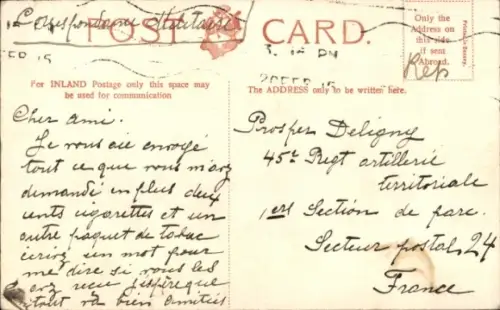 Correspondance Militaire
POST CARD.
Only the
Address on
this side
if sent
Abroad.
Rep
3. PM
FEB 15
20 FEB 15
For INLAND Postage only this space may
be used for communication
The ADDRESS only to be written here.
Cher ami.
Je vous aie envoyé
tout ce que vous m'avez
demandé en plus deux
cents cigarettes et un
autre paquet de tabac
ecrivez un mot pour
me dire si vous les
avez recu j'espére que
tout va bien amitiés
Prosper Deligny
45e Regt artillerie
territoriale
1ere Section de parc.
Secteur postal, 24
France